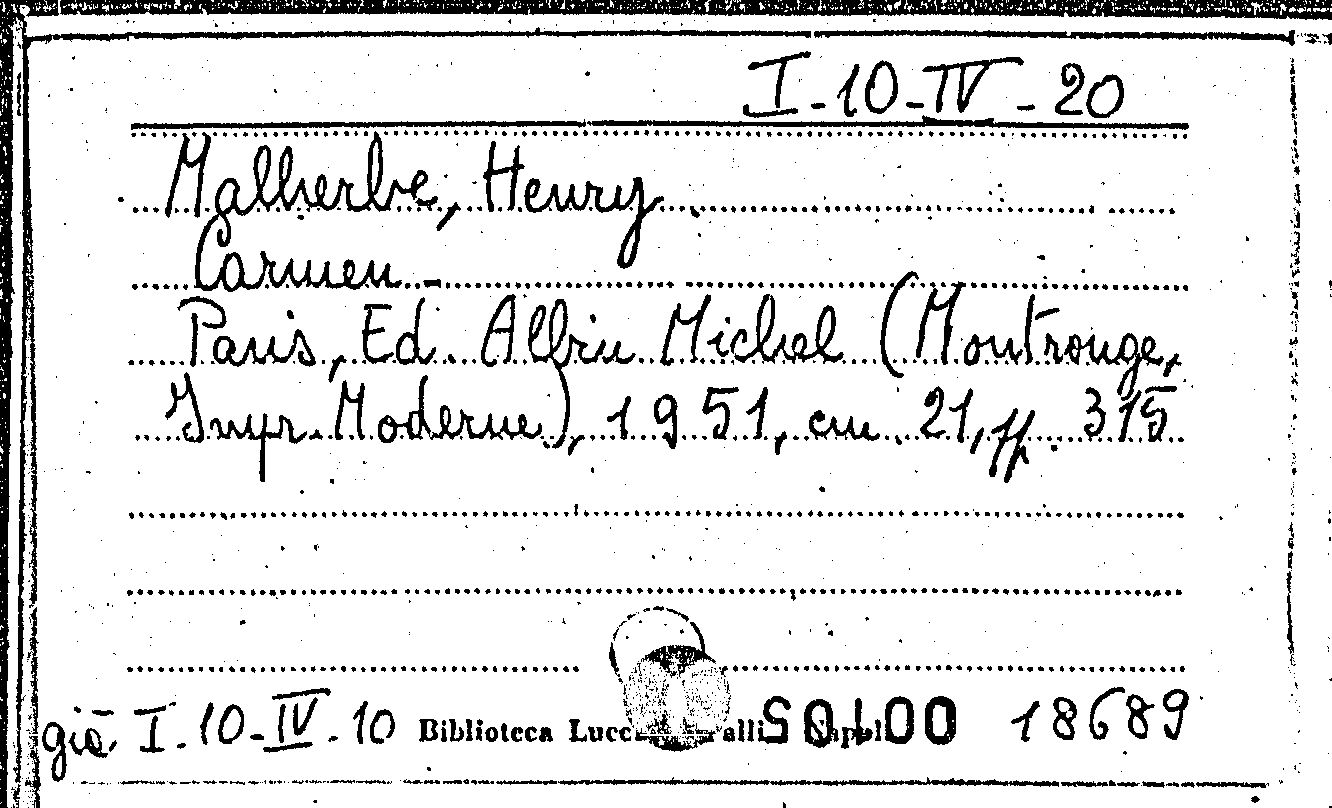 I-10-IV-20
Malherbe, Henry
Carmen -
Paris, Ed. Albin Michel (Montrouge,
Impr. Moderne), 1951, cm. 21, pp. 315
già I-10-IV-10 Biblioteca 18689